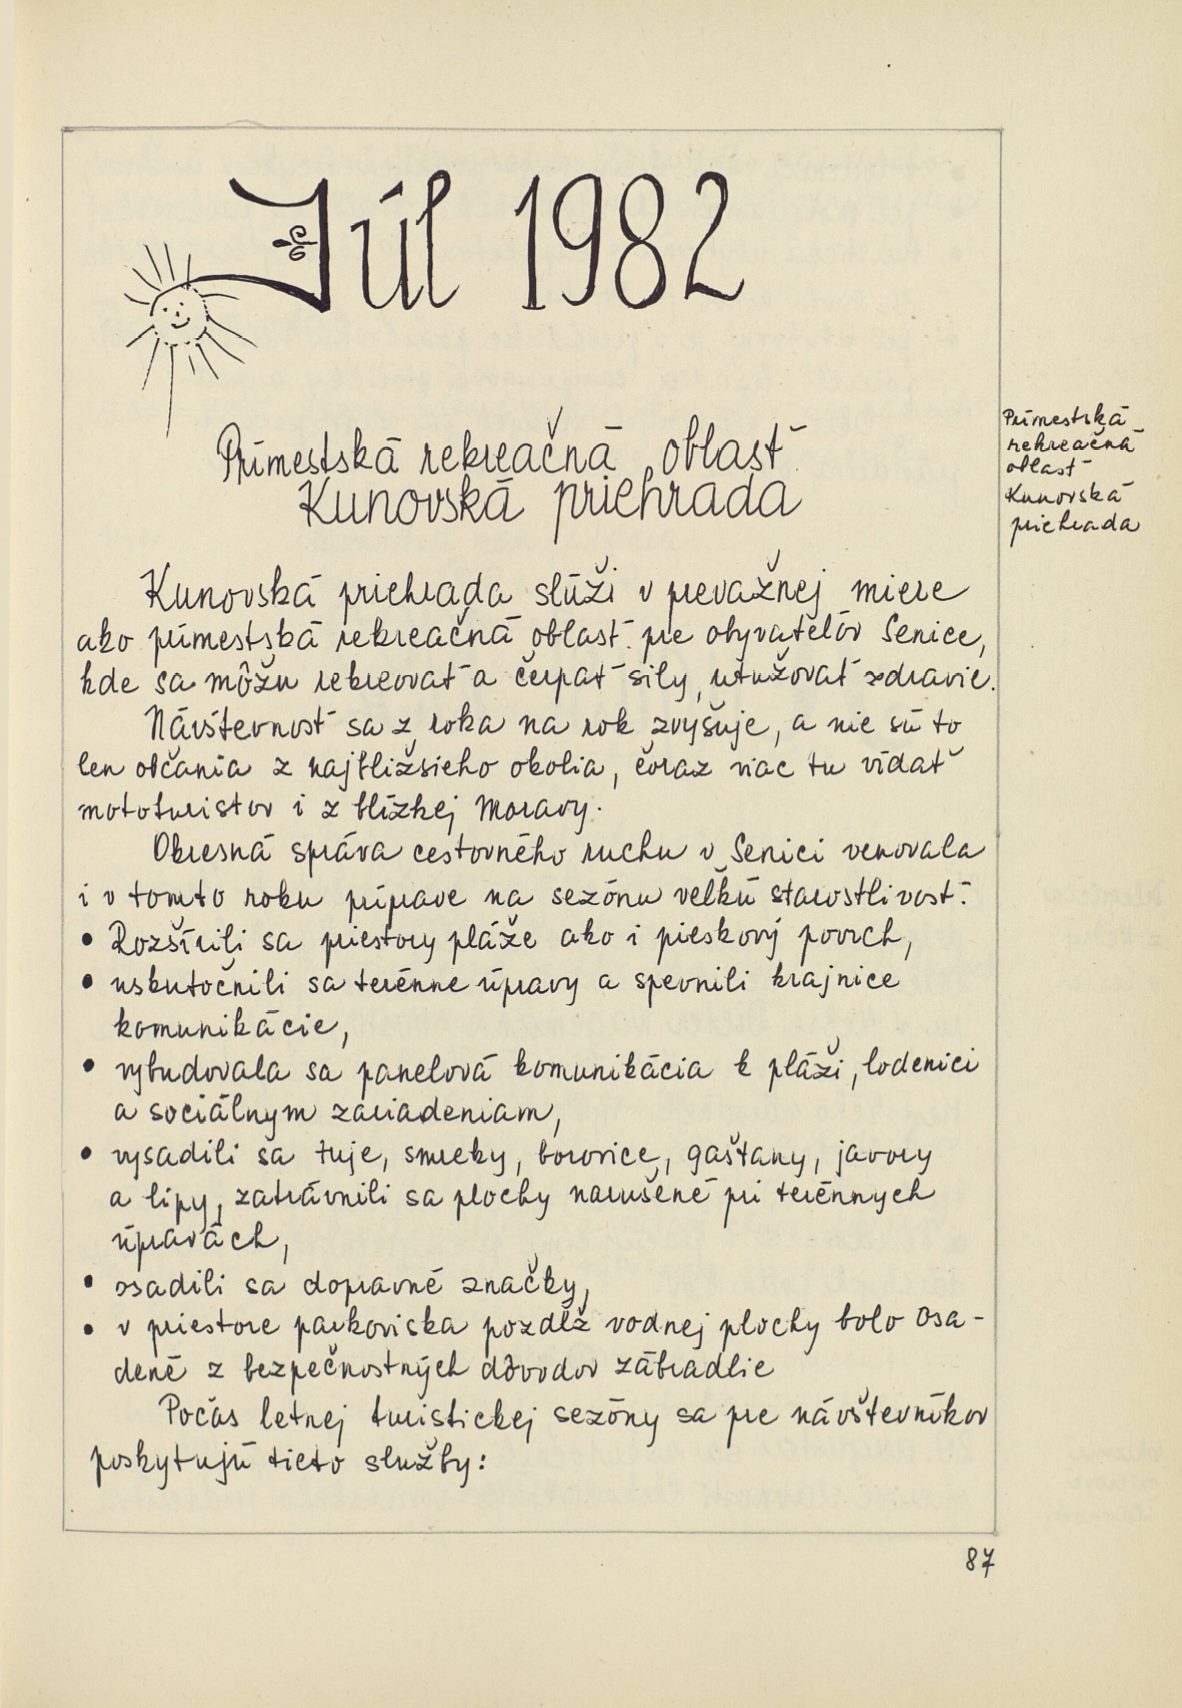 Júl 1982
Prímestská rekreačná oblasť
Kunovská priehrada
Prímestská
rekreačná
oblasť
Kunovská
priehrada
Kunovská priehrada slúži v prevažnej miere
ako prímestská rekreačná oblasť pre obyvateľov Senice,
kde sa môžu rekreovať a čerpať sily, utužovať zdravie.
Návštevnosť sa z roka na rok zvyšuje, a nie sú to
len občania z najbližšieho okolia, čoraz viac tu vídať
mototuristov i z blízkej Moravy.
Okresná správa cestovného ruchu v Senici venovala
i v tomto roku príprave na sezónu veľkú starostlivosť:
• Rozšírili sa priestory pláže ako i pieskový povrch,
• uskutočnili sa terénne úpravy a spevnili krajnice
komunikácie,
• vybudovala sa panelová komunikácia k pláži, lodenici
a sociálnym zariadeniam,
• vysadili sa tuje, smreky, borovice, gaštany, javory
a lipy, zatrávnili sa plochy narušené pri terénnych
úpravách,
• osadili sa dopravné značky,
• v priestore parkoviska pozdĺž vodnej plochy bolo osa-
dené z bezpečnostných dôvodov zábradlie
Počas letnej turistickej sezóny sa pre návštevníkov
poskytujú tieto služby:
87